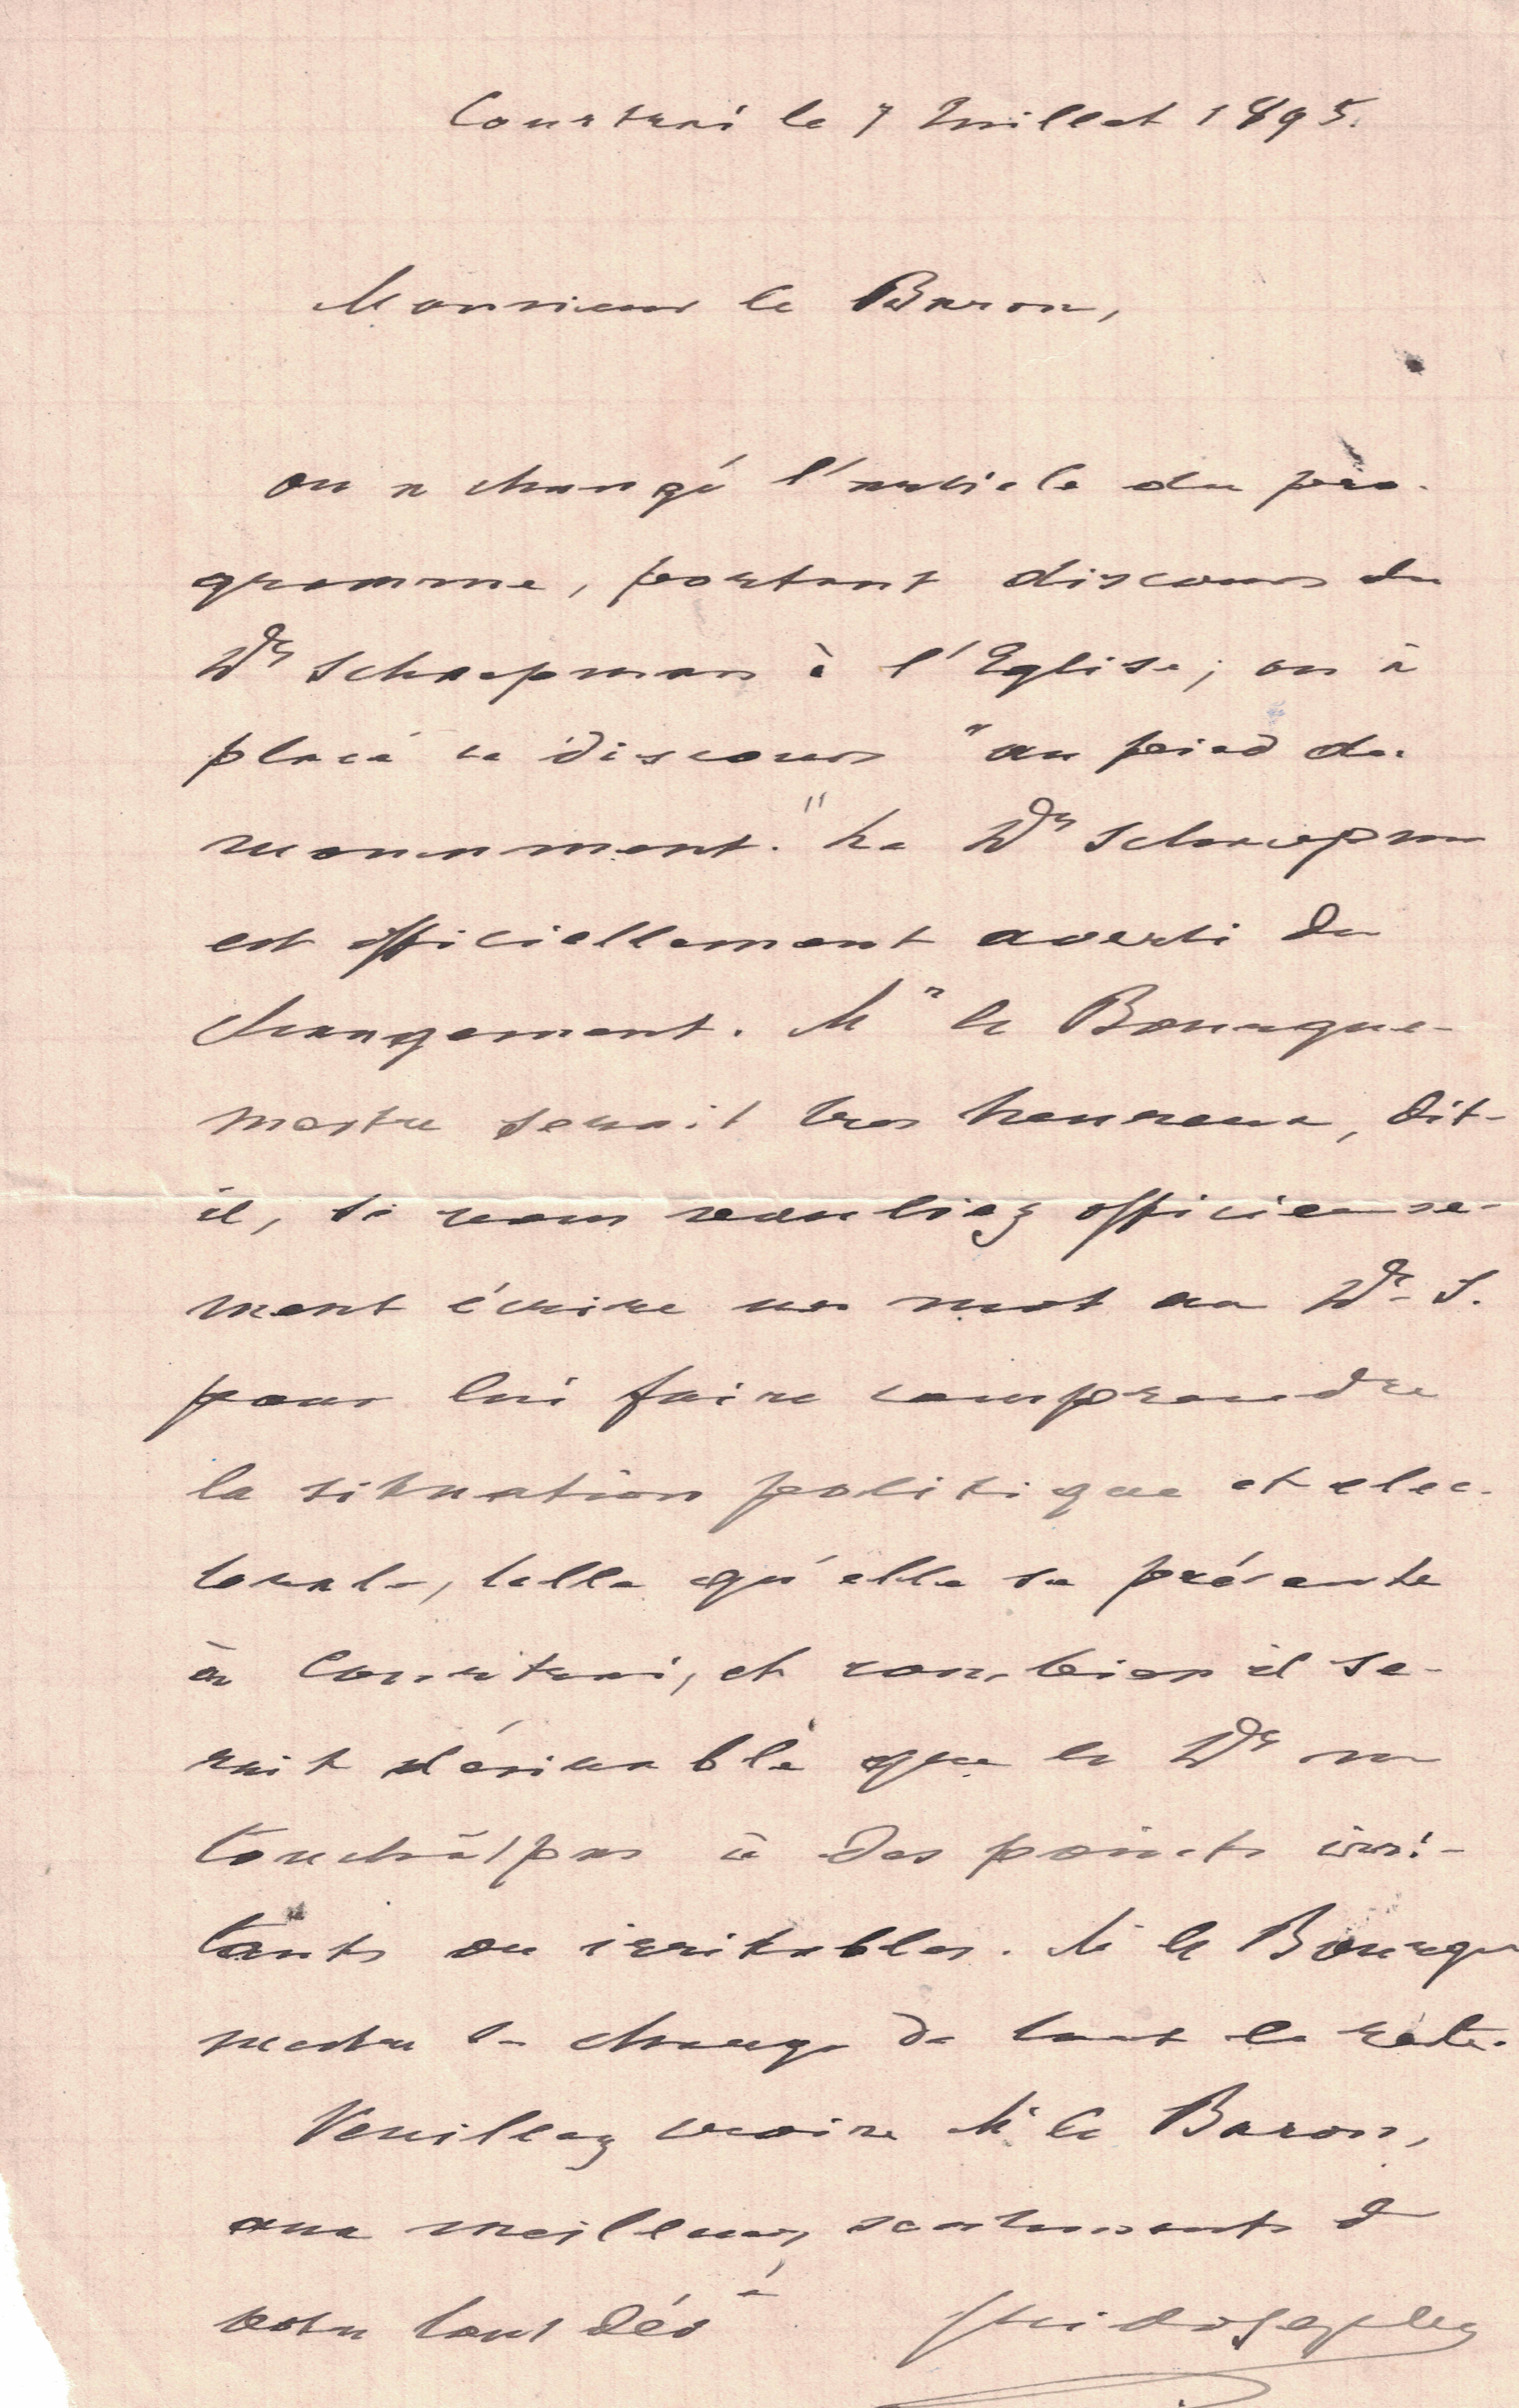 Courtrai le 7 Juillet 1895.
Monsieur le Baron,
on a changé l'article du pro-
gramme, portant discours du
Dr Schaepman à l'Eglise; on à
placé ce discours "au pied du
monument." Le Dr Schaepm
est officiellement averti du
changement. Mr le Bourgue-
mestre serait tres heureux, dit-
il, si vous vouliez officieuse-
ment écrire un mot au Dr S.
pour lui faire comprendre
la situation politique et elec-
torale, telle qu'elle se présente
à Courtrai, et combien il se-
rait désirable que le Dr ne
touchât pas à des points irri-
tants ou irritables. M. le Bourgue
mestre se charge de tout le reste.
Veuillez croire M. le Baron,
aux meilleurs sentiments d
votre tout dévé
Guido Gezelle